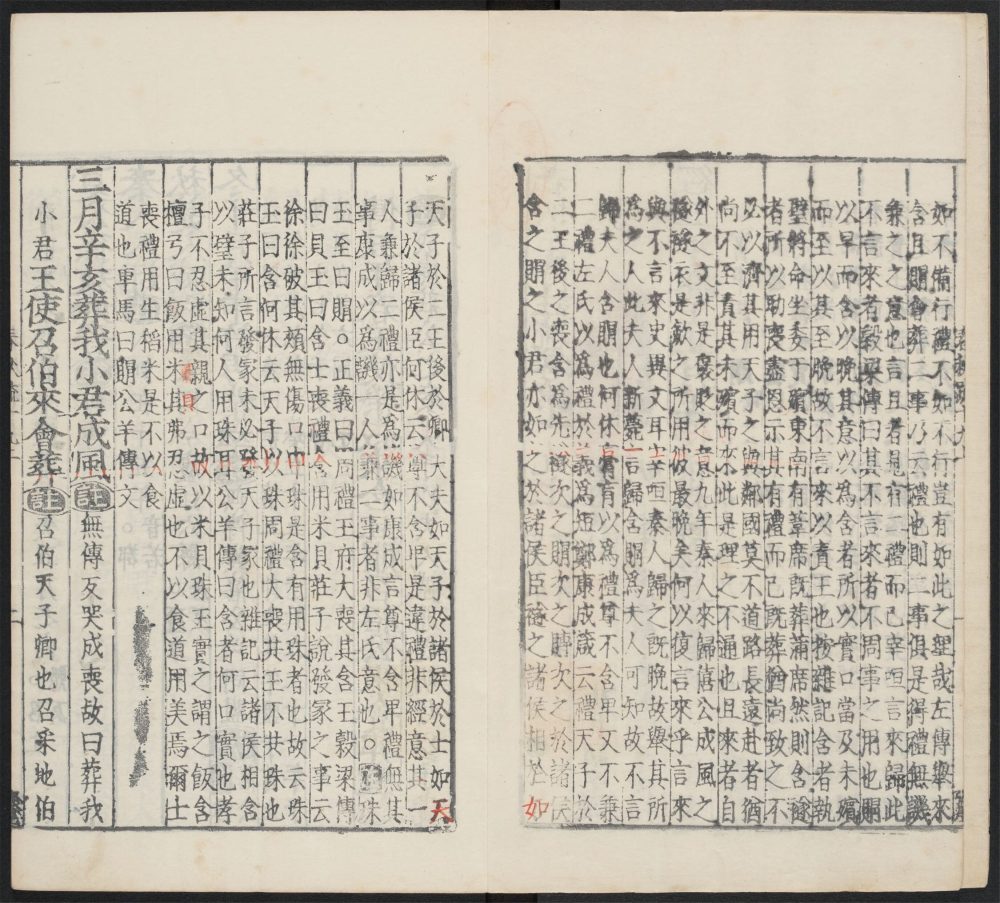 如不備行禮不如不行豈有如此之理哉左傳舉來
含且賵會葬二事乃云禮也則二事俱是得禮無譏
兼之之意也言且者見有二禮而已宰咺言來歸此
不言來者穀梁傳曰其不言來者不周事之用也賵
以早而含以晚其意以爲含者所以實口當及未殯
而至以其至晚故不言來以責王也按雜記含者執
璧將命坐委于殯東南有葦席既葬蒲席然則含襚
者所以助喪盡恩示其有禮而已既葬猶尚致之不
必以濟其用天子之與鄰國莫不道路長遠赴者猶
尚不至責其未殯而來此是理之不通也且來者自
外之文非是褒貶之意九年秦人來歸僖公成風之
襚襚是歛之所用彼最晚矣何以復言來乎言來
與不言來史異文耳宰咺秦人歸之既晚故舉其所
爲之人此夫人新薨言歸含賵爲夫人可知故不言
歸夫人含賵也何休膏肓以爲禮尊不含卑又不言兼
二禮左氏以爲禮於義爲短鄭康成箴云禮天子於
二王後之喪含爲先襚次之賵次之賻次之於諸侯
含之賵之小君亦如之於諸侯臣襚之諸侯相於如
天子於二王後於卿大夫如天子於諸侯於士如天
子於諸侯臣何休云尊不含卑是違禮非經意其一
人兼歸二禮亦是爲譏如康成言尊不含卑禮無其
事康成以爲譏一人兼二事者非左氏意也。注珠
玉至曰賵。正義曰周禮玉府大喪共含玉穀梁傳
曰貝玉曰含士喪禮含用米貝莊子說發冢之事云
徐徐破其頰無傷口中珠是含有用珠者也故云珠
玉曰含何休云天子以珠周禮大喪共玉不共珠也
莊子所言發冢未必發天子冢也雜記云諸侯相含
以璧未知何人用珠耳公羊傳曰含者何口實也孝
子不忍虛其親之口故以米貝珠玉實之謂之飯含
檀弓曰飯用米貝弗忍虛也不以食道用美焉爾士
喪禮用生稻米是不以食
道也車馬曰賵公羊傳文
三月辛亥葬我小君成風註無傳反哭成喪故曰葬我
小君王使召伯來會葬註召伯天子卿也召采地伯